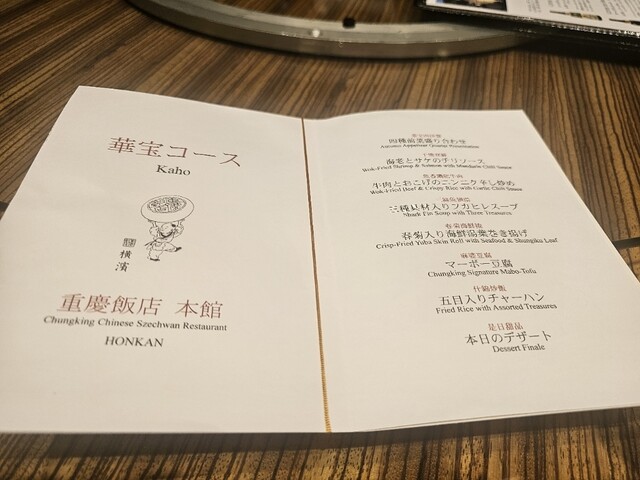 華宝コース
Kaho
横濱
重慶飯店 本館
Chungking Chinese Szechwan Restaurant
HONKAN
四種前菜盛り合わせ
海老とサケのチリソース
Wok-Fried Shrimp & Salmon with Mandarin Chili Sauce
牛肉とおこげのニンニク辛し炒め
Wok-Fried Beef & Crispy Rice with Garlic Chili Sauce
三種具材入りフカヒレスープ
Shark Fin Soup with Three Treasures
春菊入り海鮮湯葉巻き揚げ
Crisp-Fried Yuba Skin Roll with Seafood & Shungiku Leaf
麻婆豆腐
マーボー豆腐
Chungking Signature Mabo-Tofu
什錦炒飯
五目入りチャーハン
Fried Rice with Assorted Treasures
是日甜品
本日のデザート
Dessert Finale